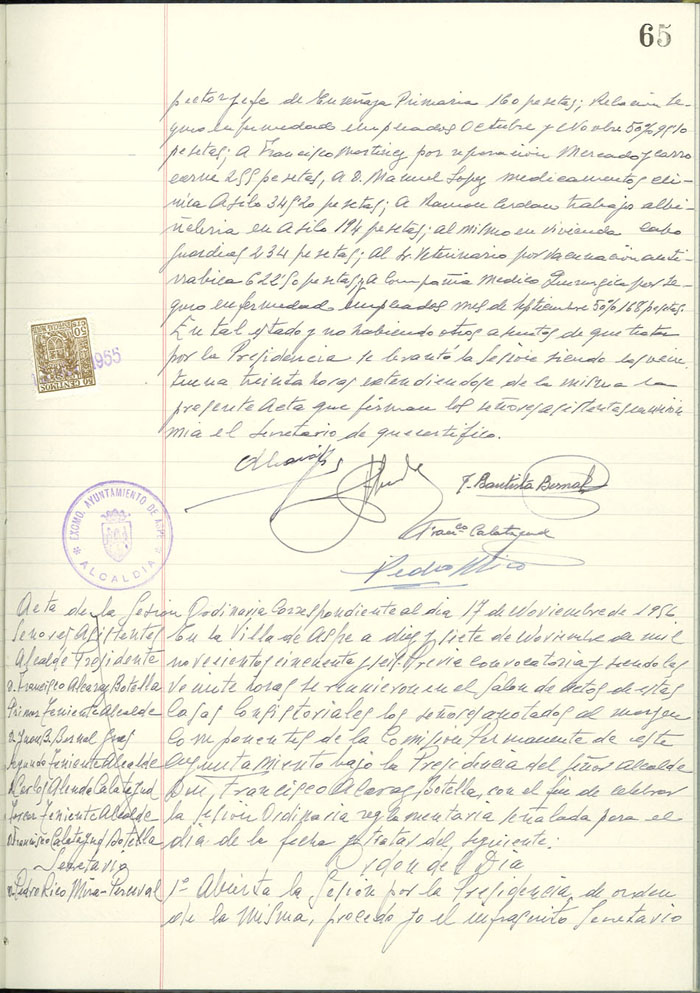 65
pector jefe de Enseñaza Primaria 160 pesetas; Relacion se-
guro enfermedad empleados Octubre y Novbre 50%
pesetas; a Francisco Martinez por reparacion Mercado y carro
carne 255 pesetas, a D. Manuel Lopez medicamentos cli-
nica Asilo 345'20 pesetas; a Ramon trabajo albi-
ñileria en Asilo 194 pesetas; al mismo en vivienda Cabo
guardias 234 pesetas; al Sr. Veterinario por vacunación anti-
rrabica 622'50 pesetas y a Compañia Medico Quirurgica por se-
guro enfermedad empleados mes de septiembre 50% 168 pesetas.
En tal estado y no habiendo otros asuntos de que tratar
por la Presidencia se levantó la Sesión siendo las vein-
tiuna treinta horas extendiendose de la misma la
presente Acta que firman los señores asistentes conmi-
mia el Secretario de que certifico.
50 CENTIMOS
1955
J. Bautista Bernal
Franco. Calatayud
EXCMO. AYUNTAMIENTO DE ASPE
ALCALDIA
Pedro Rico
Acta de la Sesion Ordinaria Correspondiente al dia 17 de Noviembre de 1956
Señores Asistentes
Alcalde Presidente
D. Francisco Alcaraz Botella
Primer Teniente Alcalde
D. Juan B. Bernal
Segundo Teniente Alcalde
D. Carlos Alenda Calatayud
Tercer Teniente Alcalde
D. Francisco Calatayud Botella
Secretario
D. Pedro Rico Mira-Perceval
En la Villa de Aspe a diez y siete de Noviembre de mil
novecientos cincuenta y seis. Previa convocatoria y siendo las
veinte horas se reunieron en el Salon de actos de estas
Casas Consistoriales los señores anotados al margen
Componentes de la Comision Permanente de este
Ayuntamiento bajo la Presidencia del Señor Alcalde
Don Francisco Alcaraz Botella, con el fin de celebrar
la Sesion Ordinaria reglamentaria señalada para el
dia de la fecha y tratar del siguiente:
Orden del Dia
1º Abierta la Sesion por la Presidencia, de orden
de la misma, procedo yo el infraescrito Secretario